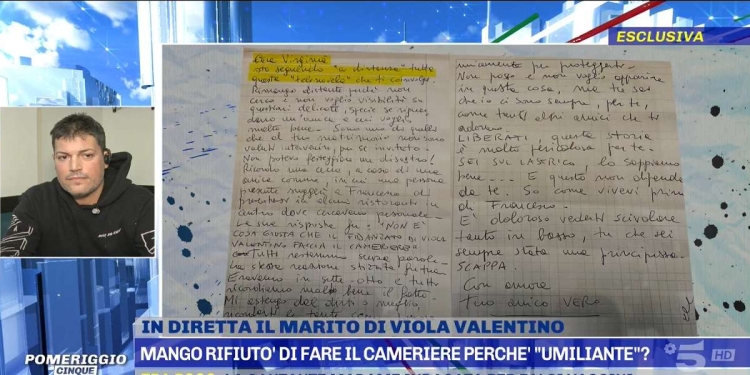 ESCLUSIVA
Cara Virginia
sto seguendo "a distanza" tutta
questa "telenovela" che ti coinvolge.
Rimango distante perché non
cerco e non voglio visibilità su
questioni delicate, specie se riguar
dano un'amica a cui voglio
molto bene. Sono una di quelle
che al tuo matrimonio non sono
voluti intervenire, pur se invitati.
Non potevo festeggiare un disastro!
Ricordo una cena, a casa di una
amica comune, in cui una persona
presente suggerì a Francesco di
presentarsi in alcuni ristoranti in
centro dove cercavano personale.
La sua risposta fu: "NON È
COSA GIUSTA CHE IL FIDANZATO DI VIOLA
VALENTINO FACCIA IL CAMERIERE"
Tutti restammo senza parole.
La stessa reazione
Eravamo in sette-otto e tutti
ricordiamo molto bene il fatto
Mi astengo dal dirti o meglio
unicamente per proteggerti.
Non posso e non voglio apparire
in questa cosa, ma tu sai
che io ci sono sempre, per te,
come tanti altri amici che ti
adorano.
LIBERATI, questa storia
è molto pericolosa per te.
SEI SUL LASTRICO, lo sappiamo
bene... E questo non dipende
da te. So come vivevi prima
di Francesco.
È doloroso vederti scivolare
tanto in basso, tu che sei
sempre stata una principessa.
SCAPPA.
Con amore
Tuo amico VERO
IN DIRETTA IL MARITO DI VIOLA VALENTINO
MANGO RIFIUTO' DI FARE IL CAMERIERE PERCHE' "UMILIANTE"?
POMERIGGIO
CINQUE
5 HD